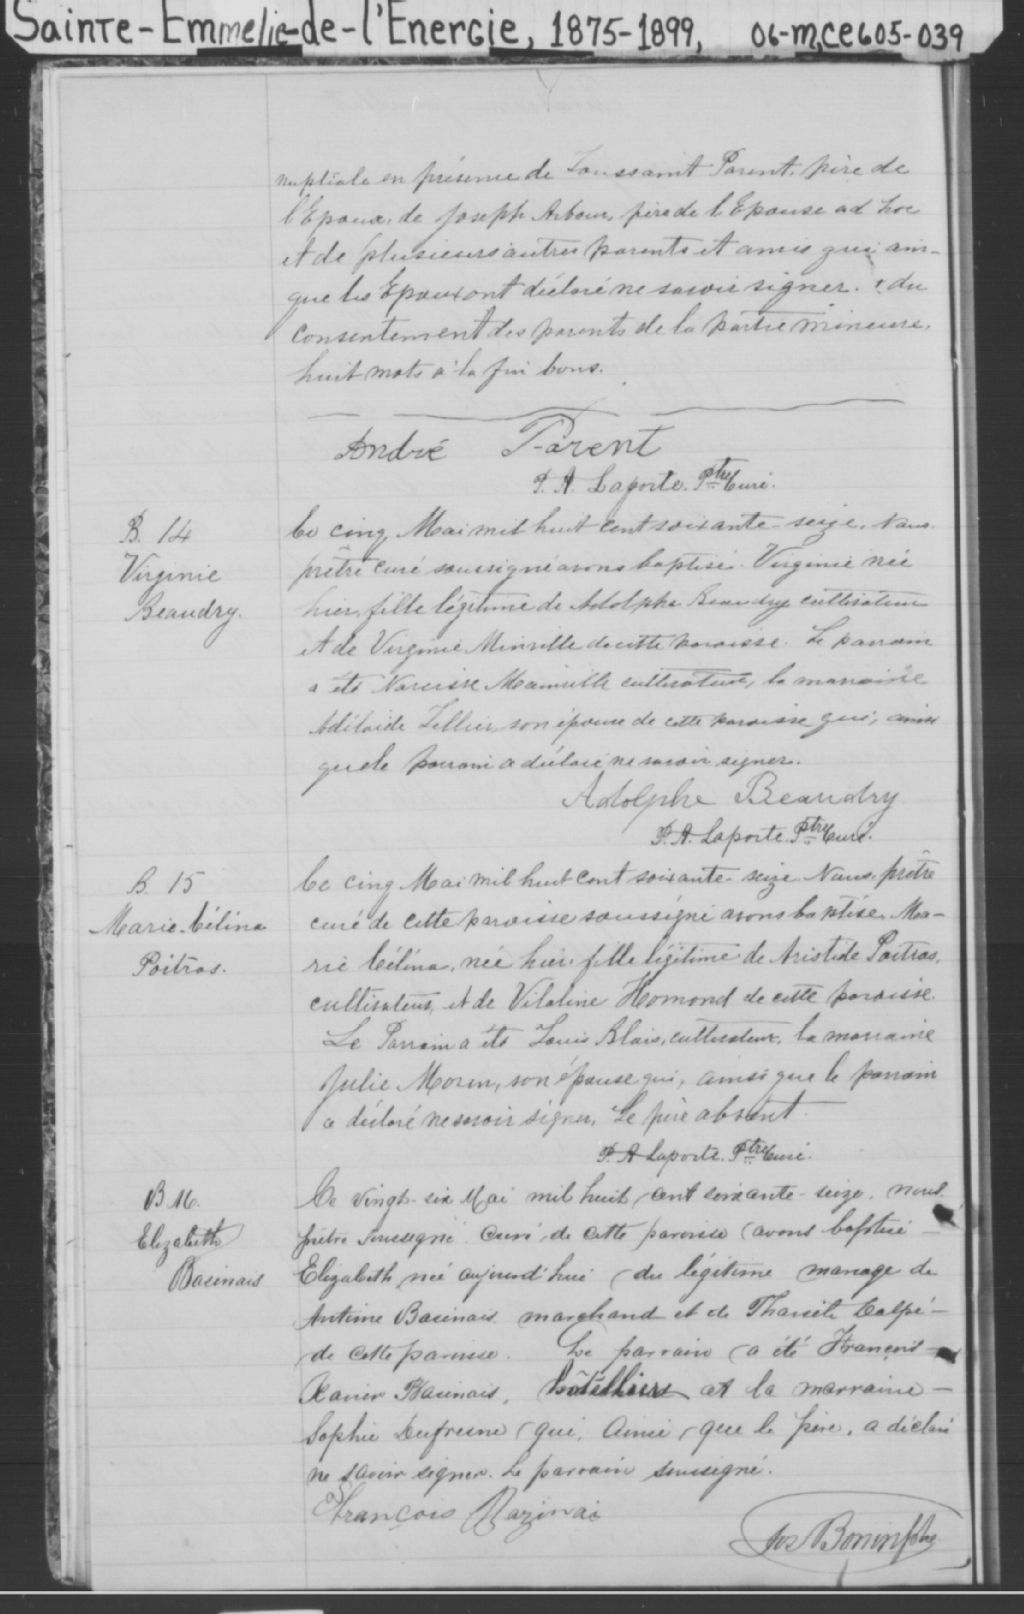 Sainte-Emmelie-de-l'Energie, 1875-1899, 06-M,CE605-039
nuptiale en présence de Toussaint Parent, père de
l'Epoux, de Joseph Arbour, père de l'Epouse ad hoc
et de plusieurs autres parents et amis qui ain-
que les Epoux ont déclaré ne savoir signer. du
consentement des parents de la partie mineure.
huit mots à la fin bons.
André Parent
P. A. Laporte. Ptre Curé.
B. 14
Virginie
Beaudry.
Le cinq Mai mil huit cent soixante-seize. Nous
prêtre curé soussigné avons baptisé Virginie née
hier, fille légitime de Adolphe Beaudry cultivateur
et de Virginie Minville de cette paroisse. Le parrain
a été Narcisse Mainville cultivateur, la marraine
Adélaide Tellier, son épouse de cette paroisse qui, ainsi
que le parrain a déclaré ne savoir signer.
Adolphe Beaudry
P. A. Laporte. Ptre Curé.
B. 15
Marie-Célina
Poitras.
Le cinq Mai mil huit cent soixante-seize Nous prêtre
curé de cette paroisse soussigné avons baptisé Ma-
rie Célina, née hier, fille légitime de Aristide Poitras,
cultivateur, et de Vitaline Homond de cette paroisse.
Le Parrain a été Louis Blais, cultivateur, la marraine
Julie Morin, son épouse qui, ainsi que le parrain
a déclaré ne savoir signer. Le père absent.
P. A. Laporte. Ptre Curé.
B 16.
Elizabeth
Basinais
Le vingt-six Mai mil huit cent soixante-seize, nous
prêtre soussigné curé de cette paroisse avons baptisé
Elizabeth née aujourd'hui du légitime mariage de
Antime Basinais marchand et de Tharsile
de cette paroisse. Le parrain a été François
Xavier Basinais, hôtellier et la marraine
Sophie Dufresne qui, ainsi que le père, a déclaré
ne savoir signer. Le parrain soussigné.
François Bazinai
Jos Bonin Ptre